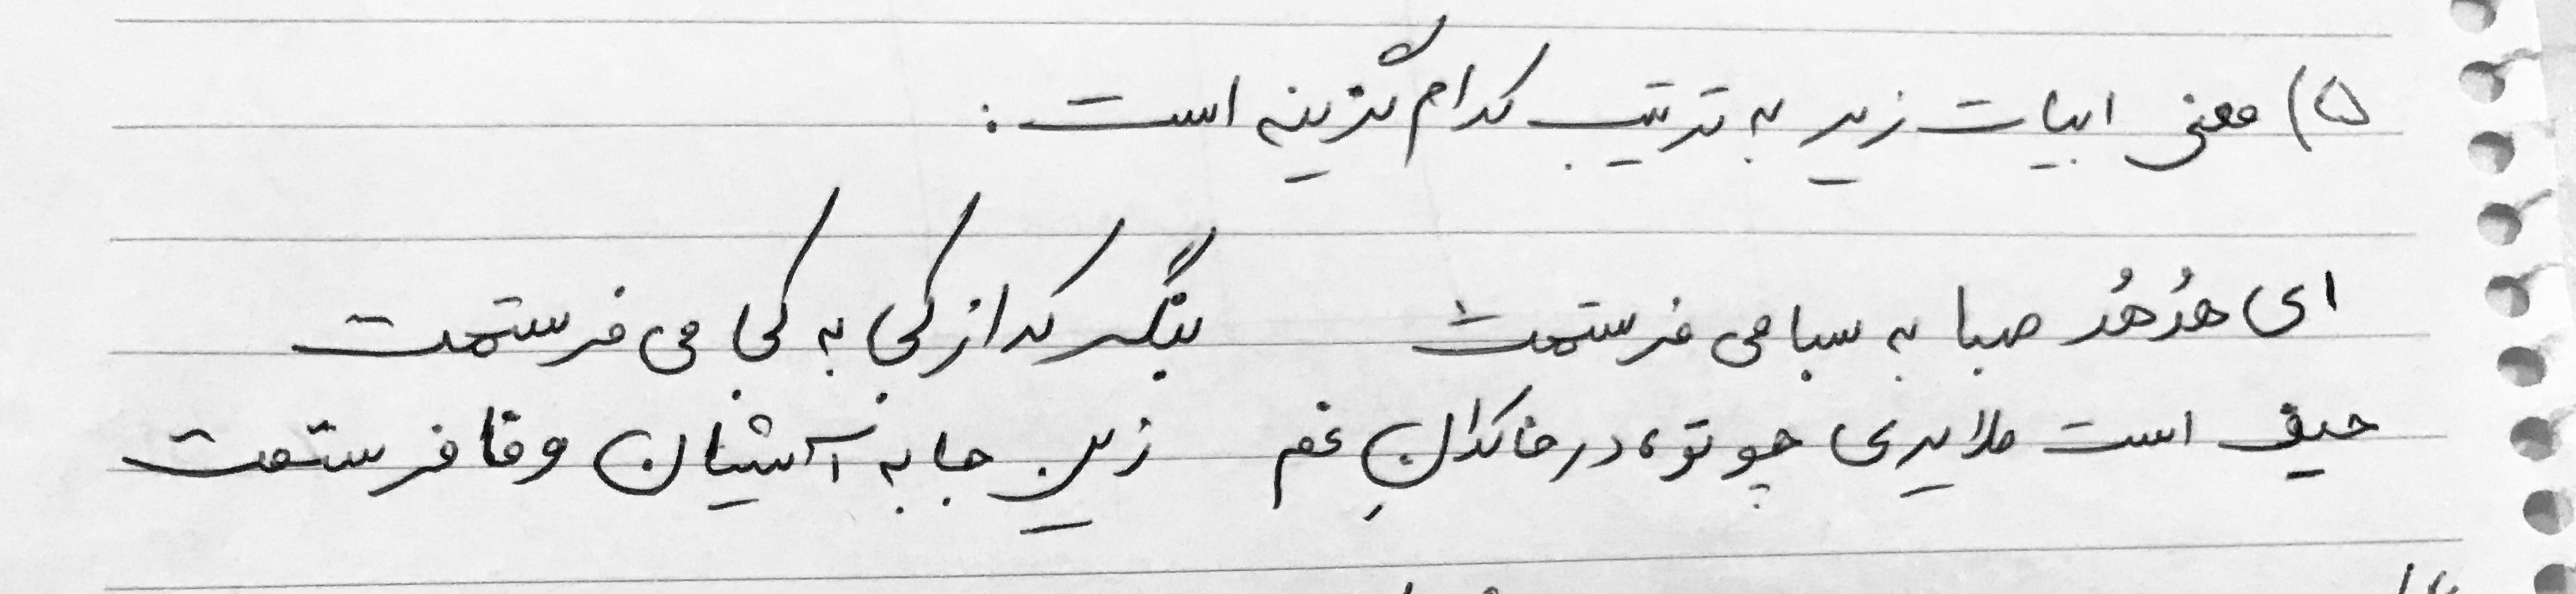 ۵) معنی ابیات زیر به ترتیب کدام گزینه است :
ای هُدهُد صبا به سبا می فرستمت بنگر که از کجا به کجا می فرستمت
حیف است طایری چو تو، در خاکدانِ غم زین جا به آشیان وفا فرستمت